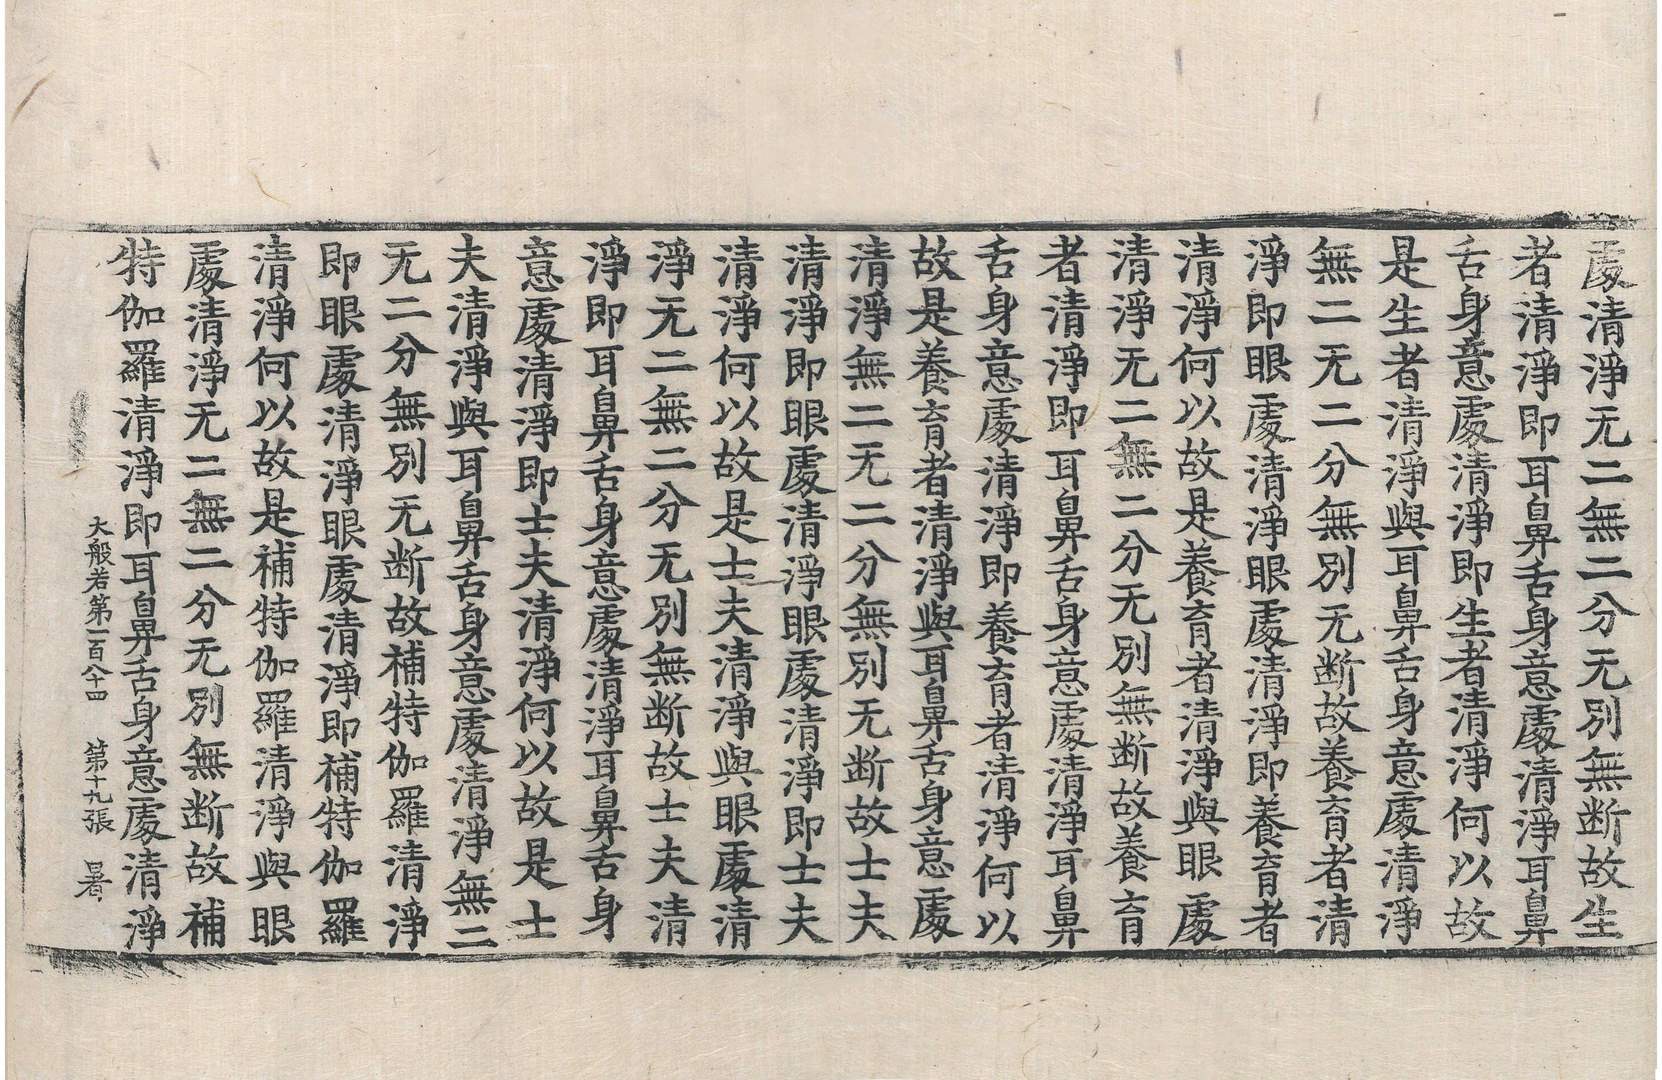 處清淨无二無二分无別無断故生
者清淨即耳鼻舌身意處清淨耳鼻
舌身意處清淨即生者清淨何以故
是生者清淨與耳鼻舌身意處清淨
無二无二分無別无断故養育者清
淨即眼處清淨眼處清淨即養育者
清淨何以故是養育者清淨與眼處
清淨无二無二分无別無断故養育
者清淨即耳鼻舌身意處清淨耳鼻
舌身意處清淨即養育者清淨何以
故是養育者清淨與耳鼻舌身意處
清淨無二无二分無別无断故士夫
清淨即眼處清淨眼處清淨即士夫
清淨何以故是士夫清淨與眼處清
淨无二無二分无別無断故士夫清
淨即耳鼻舌身意處清淨耳鼻舌身
意處清淨即士夫清淨何以故是士
夫清淨與耳鼻舌身意處清淨無二
无二分無別无断故補特伽羅清淨
即眼處清淨眼處清淨即補特伽羅
清淨何以故是補特伽羅清淨與眼
處清淨无二無二分无別無断故補
特伽羅清淨即耳鼻舌身意處清淨
大般若第一百八十四 第十九張 暑